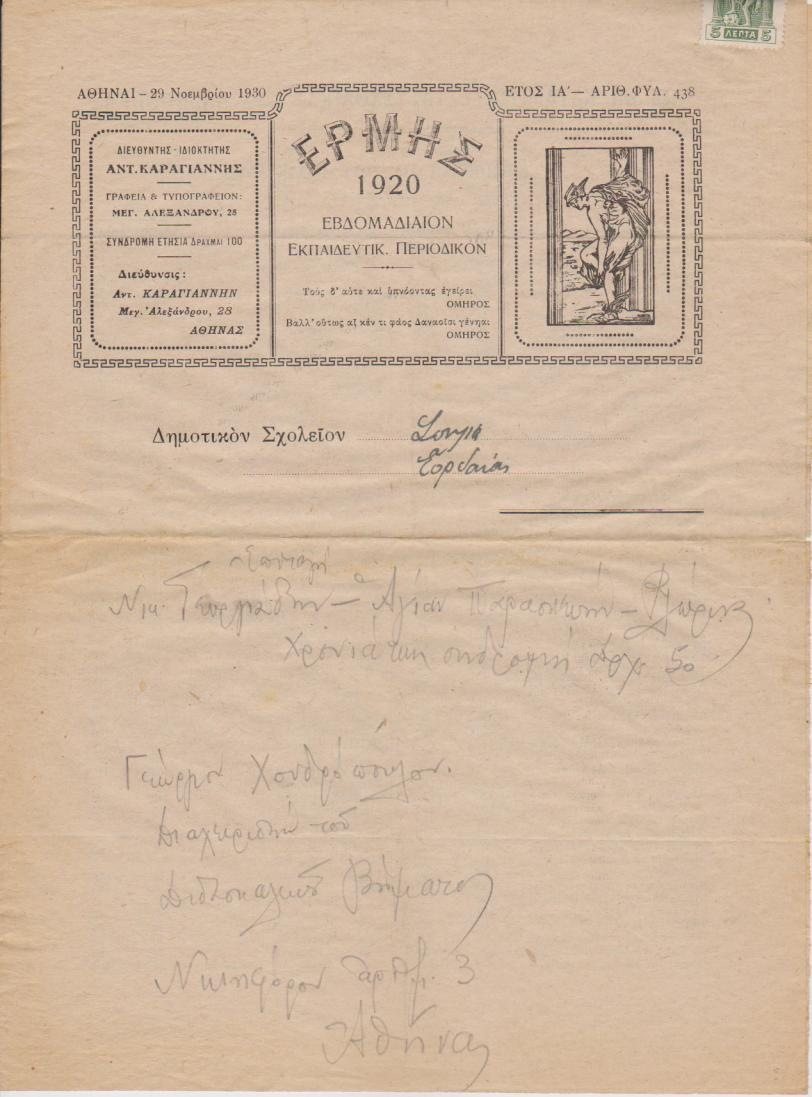 5 ΛΕΠΤΑ 5
ΑΘΗΝΑΙ – 29 Νοεμβρίου 1930
ΕΤΟΣ ΙΑ΄ — ΑΡΙΘ. ΦΥΛ. 438
ΔΙΕΥΘΥΝΤΗΣ - ΙΔΙΟΚΤΗΤΗΣ
ΑΝΤ. ΚΑΡΑΓΙΑΝΝΗΣ
ΓΡΑΦΕΙΑ & ΤΥΠΟΓΡΑΦΕΙΟΝ:
ΜΕΓ. ΑΛΕΞΑΝΔΡΟΥ, 28
ΣΥΝΔΡΟΜΗ ΕΤΗΣΙΑ ΔΡΑΧΜΑΙ 100
Διεύθυνσις:
Αντ. ΚΑΡΑΓΙΑΝΝΗΝ
Μεγ. Ἀλεξάνδρου, 28
ΑΘΗΝΑΣ
ΕΡΜΗΣ
1920
ΕΒΔΟΜΑΔΙΑΙΟΝ
ΕΚΠΑΙΔΕΥΤΙΚ. ΠΕΡΙΟΔΙΚΟΝ
Τοὺς δ' αὖτε καὶ ὑπνόοντας ἐγείρει
ΟΜΗΡΟΣ
Βαλλ' οὕτως αἴ κέν τι φάος Δαναοῖσι γένηαι
ΟΜΗΡΟΣ
Δημοτικὸν Σχολεῖον
Ἐορδαίας
Νικ. Γεωργιάδην – Ἁγίαν Παρασκευήν – Φλώρινα
Χρονιάτικη συνδρομή δρχ 50
Γεώργιον Χονδρόπουλον.
Διαχειριστὴν τοῦ
Διδασκαλικοῦ Βήματος
Νικηφόρου ἀριθμ. 3
Ἀθήνας